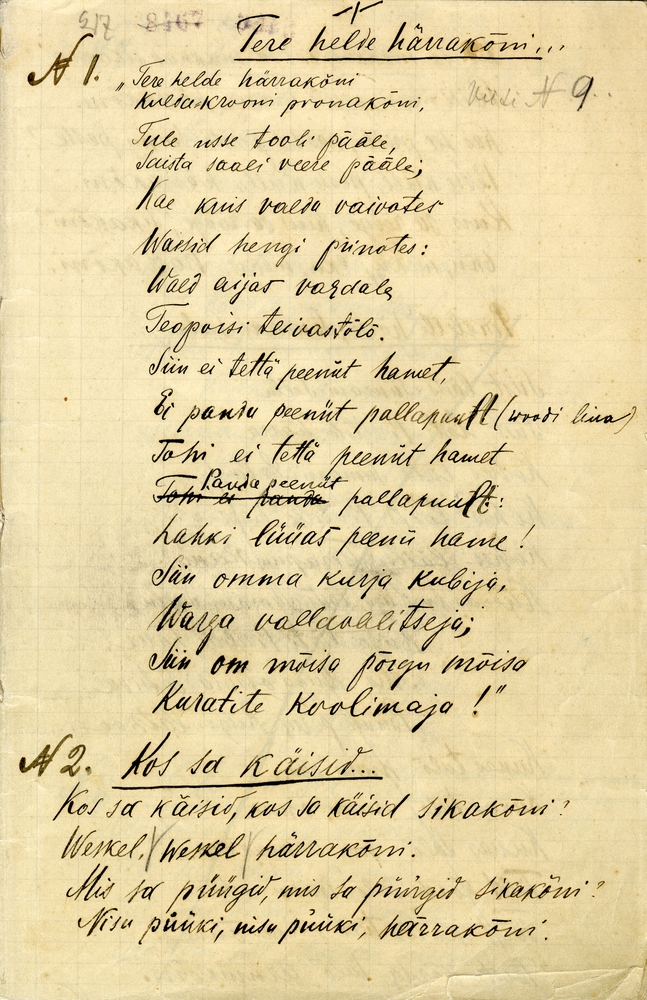 Tere helde härrakõni...
N 1.
„Tere helde härrakõni
Kulda-krooni pronakõni,
N 9.
Tule usse tooli pääle,
Saista saali veere pääle;
Kae kuis valda vaivates
Wassid hengi piinates:
Wald aijas vardale,
Teopoisi teivastõlõ.
Siin ei tettä peenüt hamet,
Ei panda peenüt pallapuult (woodi lina)
Tohi ei tettä peenüt hamet
Panda peenüt
Tohi ei panda pallapuult:
Lahki lüüas peenü hame!
Siin omma kurja kubija,
Warga vallavalitseja;
Siin om mõisa põrgu mõisa
Kuratite koolimaja!"
N 2. Kos sa käisid...
Kos sa käisid, kos sa käisid sikakõni?
Weskel, weskel härrakõni.
Mis sa püügid, mis sa püügid sikakõni?
Nisu püüki, nisu püüki, härrakõni.